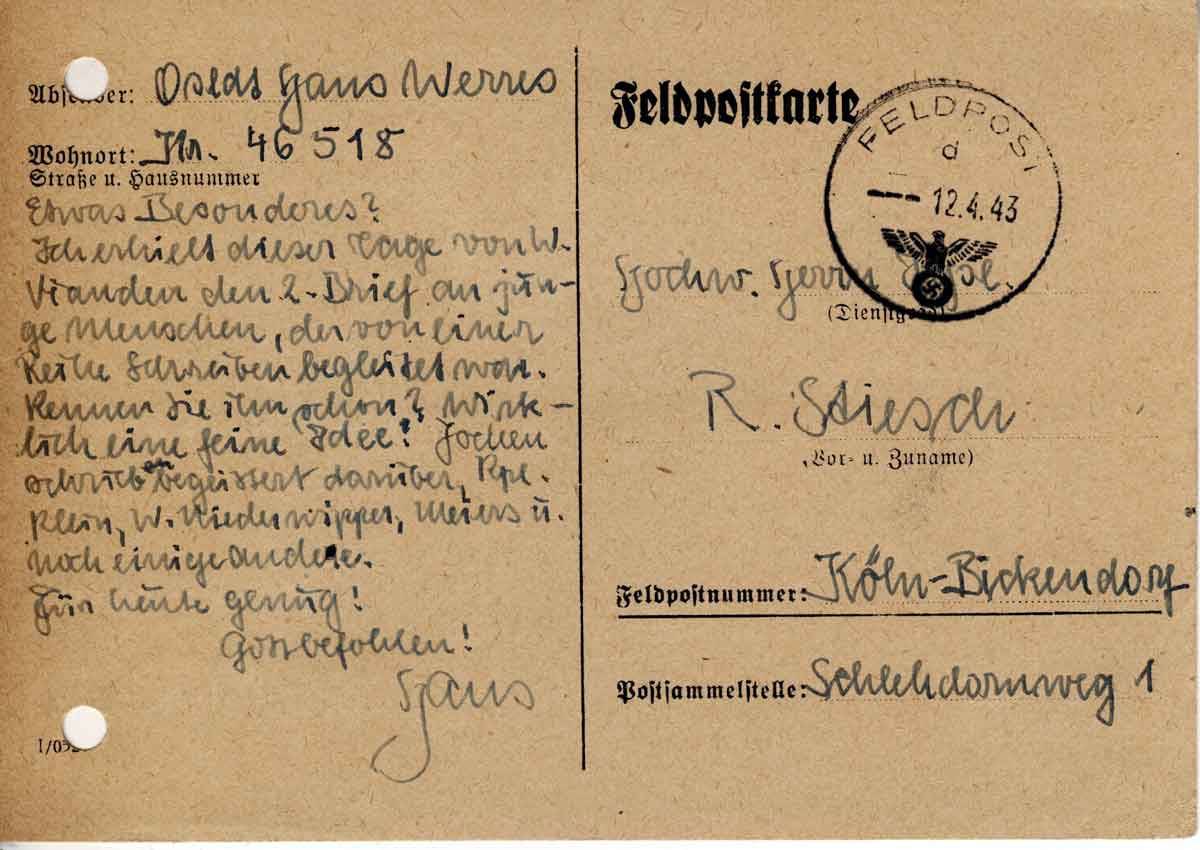 Absender: Osldt Hans Werres
Wohnort: Nr. 46 518
Straße u. Hausnummer
Etwas Besonderes?
Ich erhielt dieser Tage von W.
Vianden den 2. Brief an jun-
ge Menschen, der von einer
Reihe Schreiben begleitet war.
Kennen Sie ihn schon? Wirk-
lich eine feine Idee! Jochen
schrieb begeistert darüber, Kpl.
Klein, W. Niederwipper, Meiers u.
noch einige andere.
Für heute genug!
Gottbefohlen!
Hans
I/052
Feldpostkarte
FELDPOST
d
12.4.43
Hochw. Herrn
(Dienstgrad)
R. Stiesch
(Vor- u. Zuname)
Feldpostnummer: Köln-Bickendorf
Postsammelstelle: Schlehdornweg 1